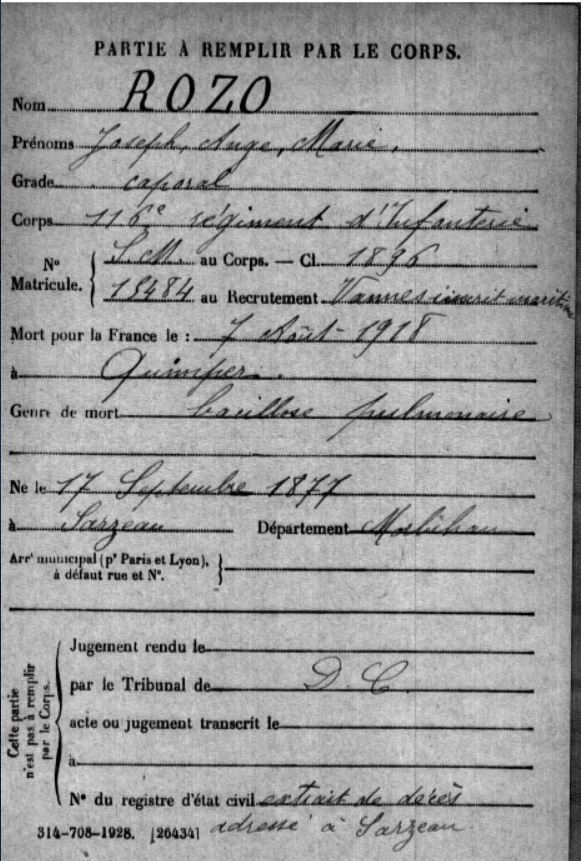 PARTIE À REMPLIR PAR LE CORPS.
Nom ROZO
Prénoms Joseph, Ange, Marie.
Grade caporal
Corps 116e régiment d'Infanterie
N° Matricule. { S.M. au Corps. — Cl. 1896
18484 au Recrutement Vannes inscrit maritime
Mort pour la France le : 7 Août 1918
à Quimper.
Genre de mort bacillose pulmonaire
Né le 17 Septembre 1877
à Sarzeau Département Morbihan
Arrt municipal (pr Paris et Lyon),
à défaut rue et N°.
Cette partie
n'est pas à remplir
par le Corps.
Jugement rendu le
par le Tribunal de D. C.
acte ou jugement transcrit le
à
N° du registre d'état civil extrait de décès
adressé à Sarzeau
314-708-1928. [26434]